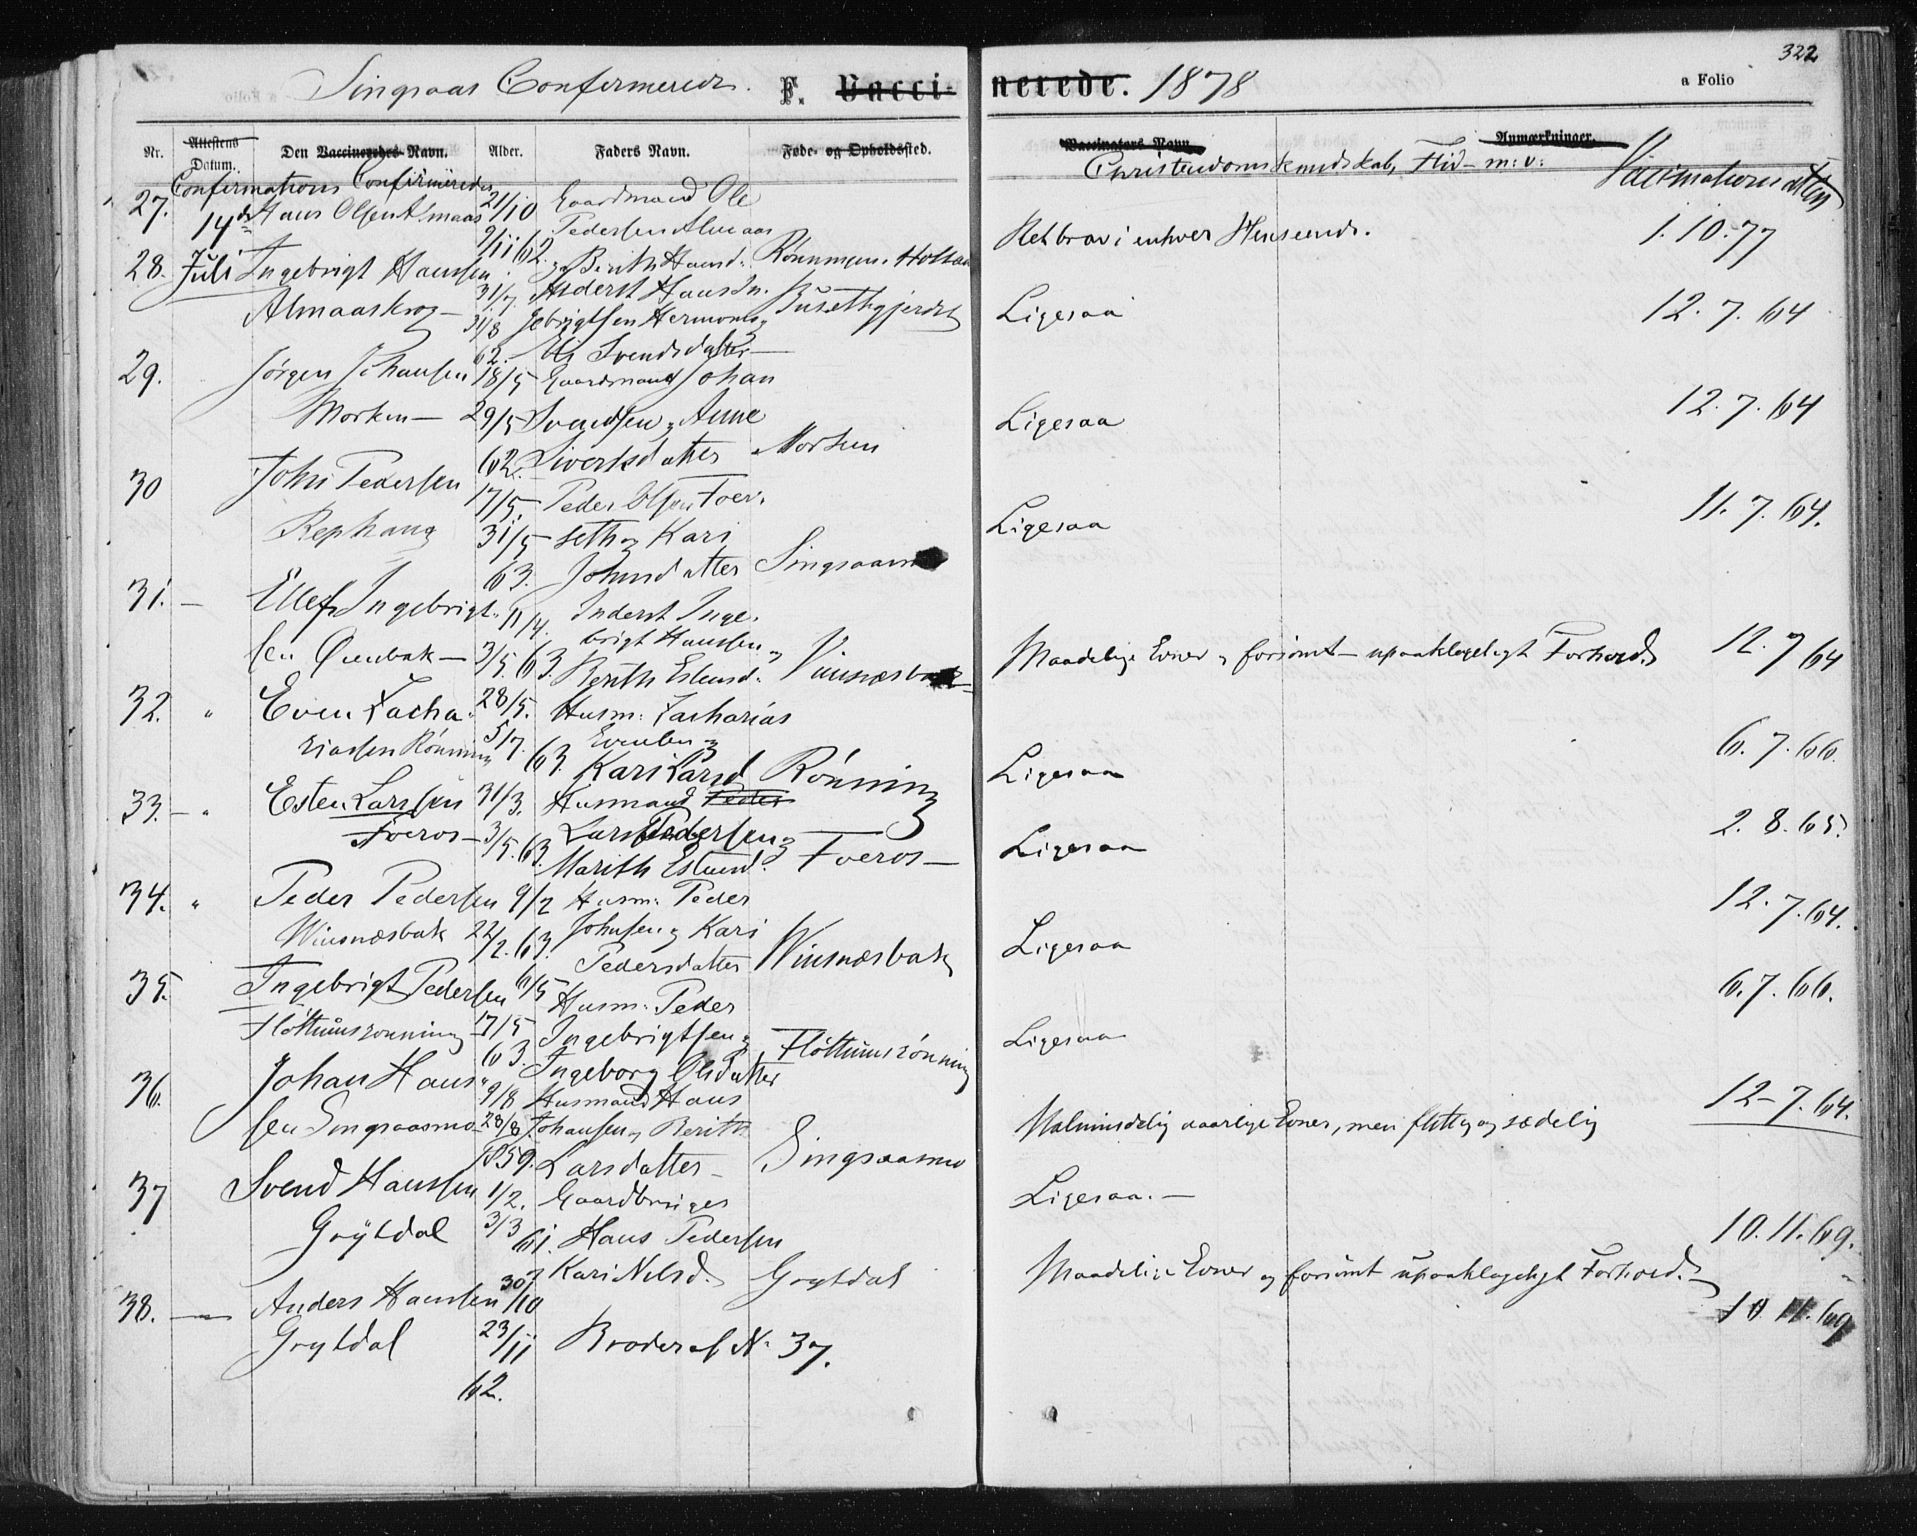 322
Singsaas Confirmerede. F. Vacci- nerede. 1878 a Folio
Nr. Attestens Datum. Den Vaccineredes Navn. Alder. Faders Navn. Føde- og Opholdssted. Vaccinators Navn. Anmærkninger.
Confirmations Confirmeredes Christendomskundskab, Flid m: v: Vaccinationsattest
27. 14de Hans Olsen Almaas 21/10 Gaardmand Ole
9/11 62. Pedersen Almaas
Retbrav i enhver Henseende. 1.10.77
og Berith Hansd.
28. Juli Ingebrigt Hanssen
31/7 Inderst Hans In-
Almaaskrog 31/8 gebrigtsen Hermo og Busethgjerdet Ligesaa 12.7.64
62. Svendsdatter
29. Jørgen Johansen 18/5 Gaardmand Johan
Morken 29/5 Svendsen og Anne Ligesaa 12.7.64
62. Sivertsdatter Morken
30 John Pedersen
17/5. Peder Olsen Foer-
Rephaug 31/5 seth og Kari Ligesaa 11.7.64.
63. Johnsdatter Singsaas
31. Ellef Ingebrigt- 11/4. Inderst Inge-
brigt Hanssen og
sen 3/5. 63. Berith Estensd. Vinsnesbak Maadelige Evner og forsømt - upaaklageligt Forhold. 12.7 64
32. " Even Zacha- 28/5. Husm: Zacharias
riassen Rønning 5/7. Evensen og
63. Kari Larsd Rønning Ligesaa 6.7.66.
33. " Esten Larssen 31/3. Husmand Peder
Foeros 3/5. 63. Lars Pedersen og Foeros Ligesaa 2.8.65.
Marith Estensd.
34. " Peder Pedersen 9/2 Husm: Peder
Winsnæsbak 22/2. 63. Johnsen og Kari Winsnæsbak Ligesaa 12.7.64.
Pedersdatter
35. Ingebrigt Pedersen 6/5 Husm: Peder
Fløttumsrønning 17/5 Ingebrigtsen og Fløttumsrønning Ligesaa 6.7.66.
63. Ingeborg Olsdatter
36. Johan Hans- 9/8 Husmand Hans
sen Singsaasmo 28/8. Johansen og Berith Singsaasmo Maadelige Evner, men flittig og sædelig 12-7.64.
1859. Larsdatter
37 Svend Hanssen 1/2. Gaardbruger Ligesaa.
Grytdal 3/3 61. Hans Pedersen 10.11.69.
Kari Nilsd. Grytdal
38. Anders Hanssen 30/10 Maadelige Evner og forsømt upaaklageligt Forhold.
Grytdal 23/11 Broder af N. 37. 10.11.69
62.